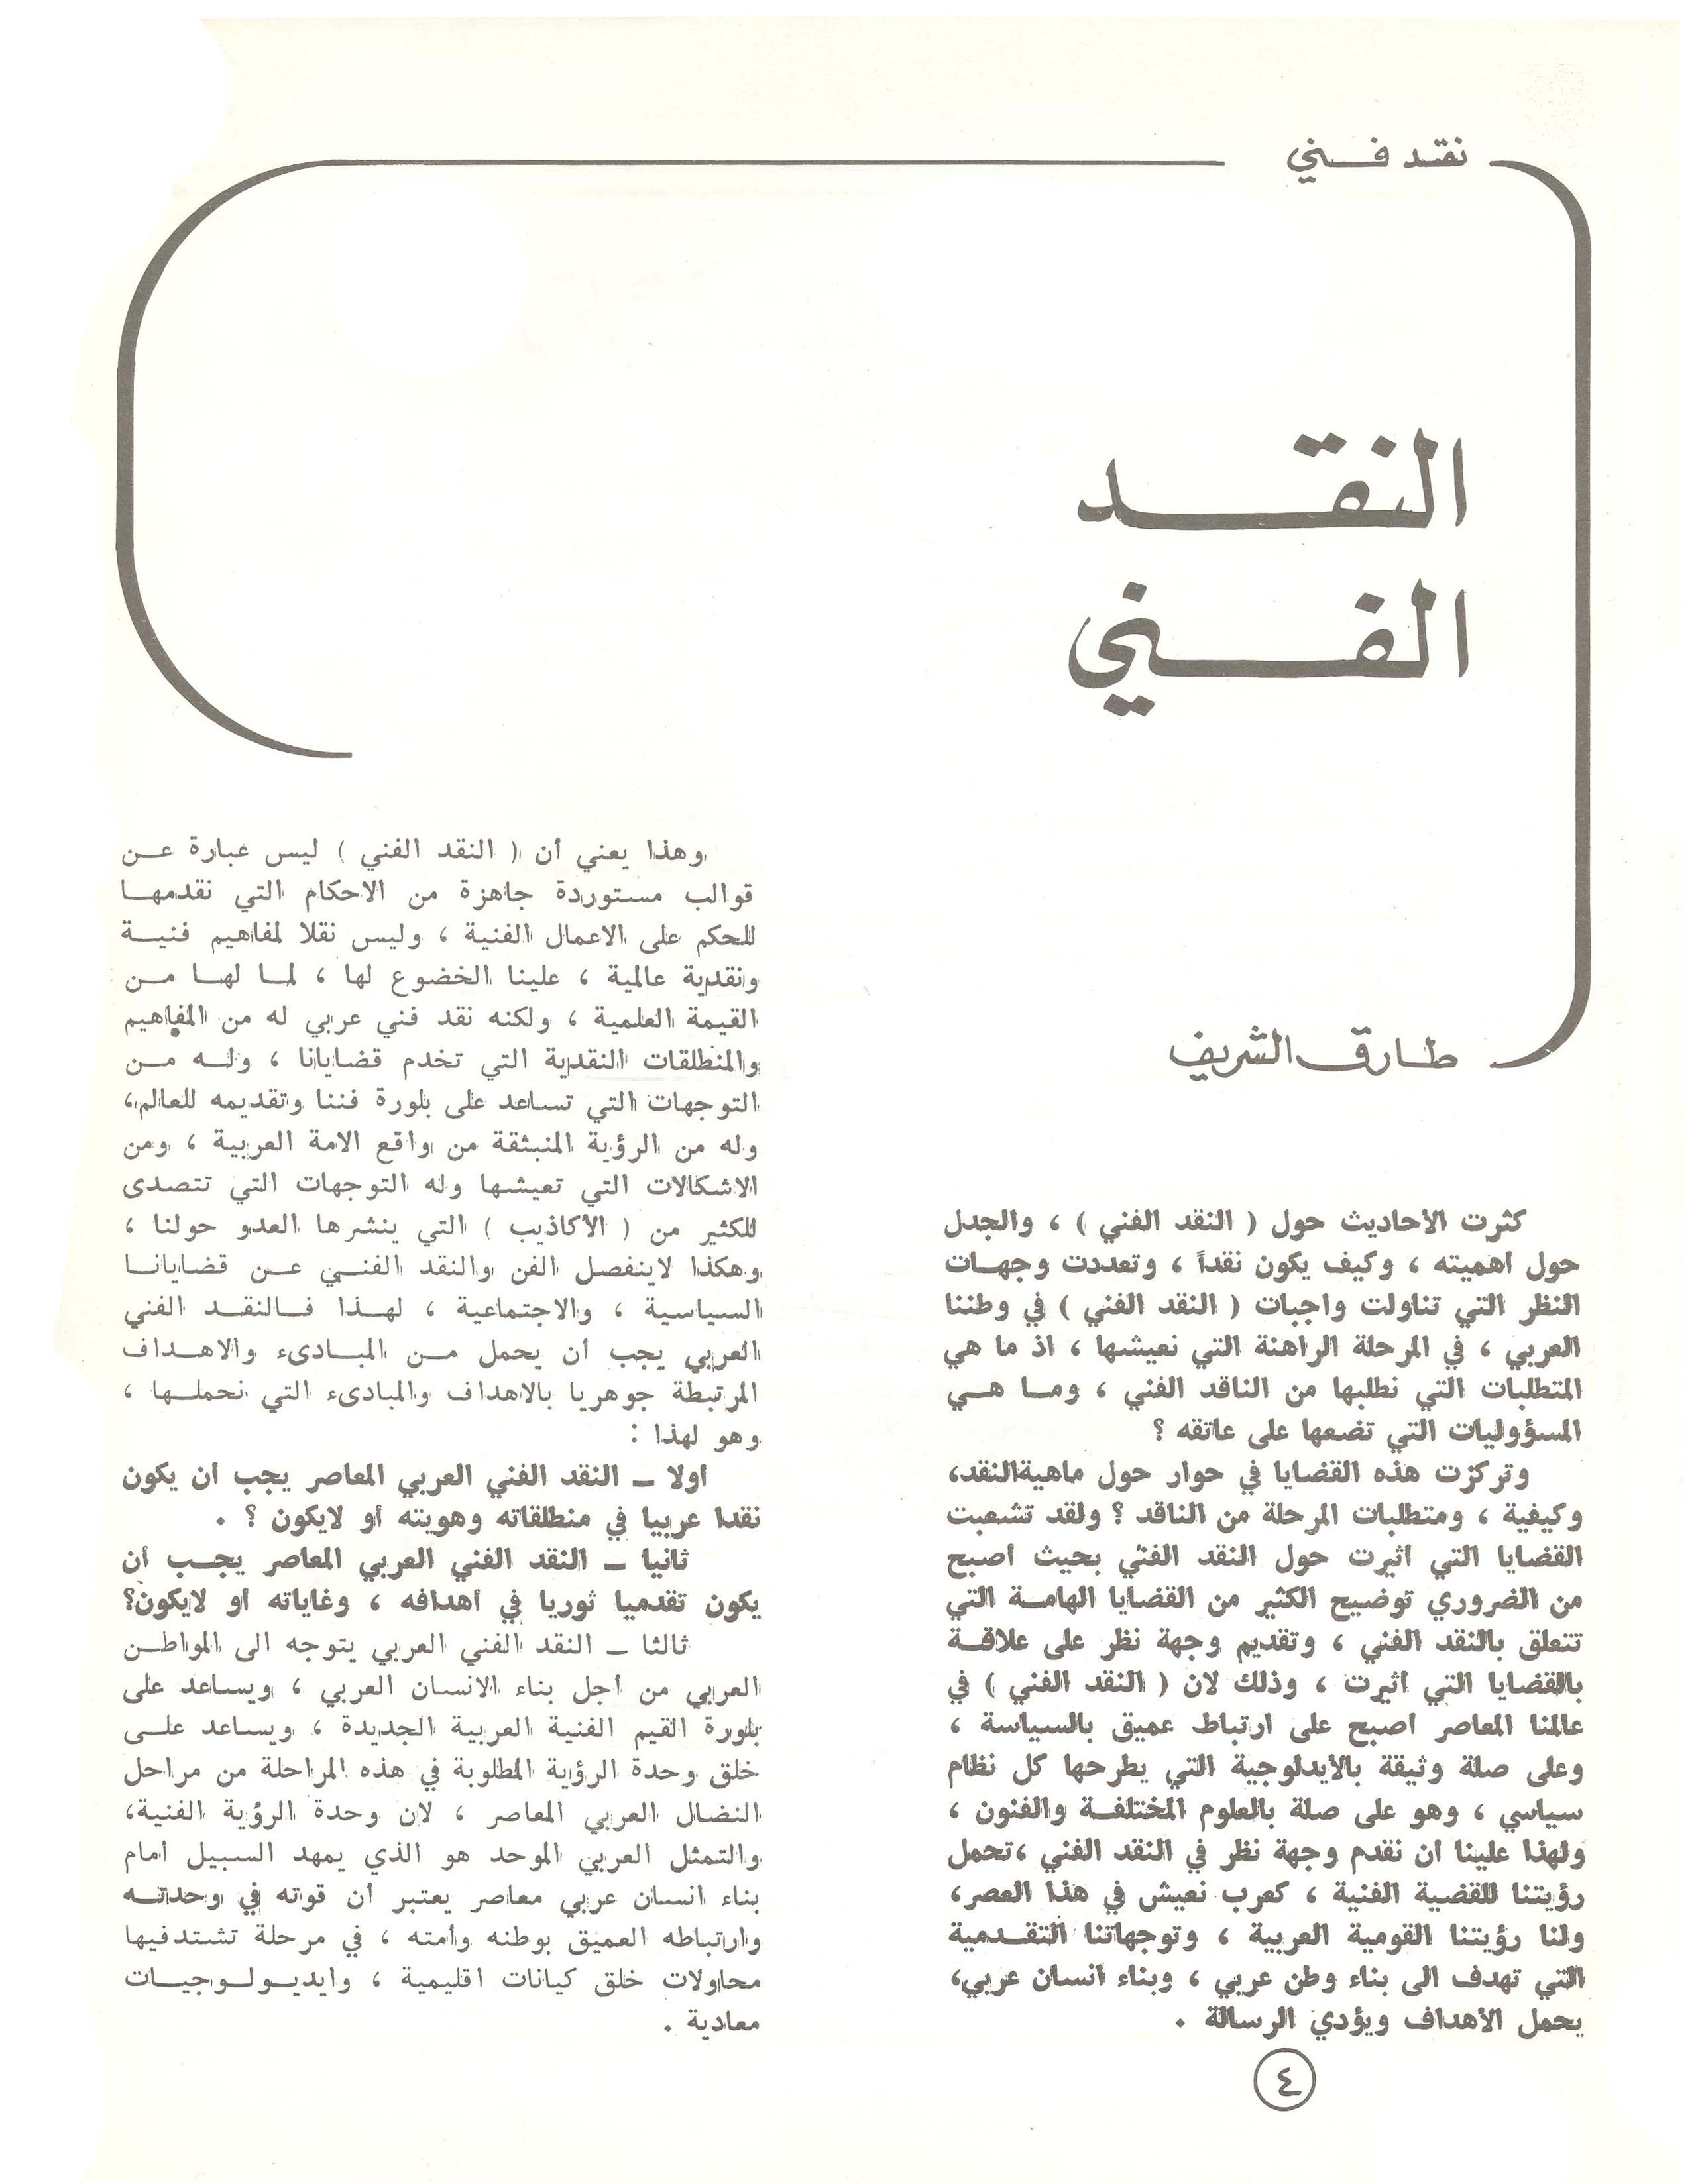 نقد فني
النقد
الفني
طارق الشريف
كثرت الأحاديث حول ( النقد الفني ) ، والجدل
حول أهميته ، وكيف يكون نقداً ، وتعددت وجهات
النظر التي تناولت واجبات ( النقد الفني ) في وطننا
العربي ، في المرحلة الراهنة التي نعيشها ، اذ ما هي
المتطلبات التي نطلبها من الناقد الفني ، وما هي
المسؤوليات التي تضعها على عاتقه ؟
وتركزت هذه القضايا في حوار حول ماهية النقد،
وكيفية ، ومتطلبات المرحلة من الناقد ؟ ولقد تشعبت
القضايا التي أثيرت حول النقد الفني بحيث أصبح
من الضروري توضيح الكثير من القضايا الهامة التي
تتعلق بالنقد الفني ، وتقديم وجهة نظر على علاقة
بالقضايا التي أثيرت ، وذلك لان ( النقد الفني ) في
عالمنا المعاصر اصبح على ارتباط عميق بالسياسة ،
وعلى صلة وثيقة بالأيدلوجية التي يطرحها كل نظام
سياسي ، وهو على صلة بالعلوم المختلفة والفنون ،
ولهذا علينا ان نقدم وجهة نظر في النقد الفني ،تحمل
رؤيتنا للقضية الفنية ، كعرب نعيش في هذا العصر،
ولنا رؤيتنا القومية العربية ، وتوجهاتنا التقدمية
التي تهدف الى بناء وطن عربي ، وبناء انسان عربي،
يحمل الأهداف ويؤدي الرسالة .
وهذا يعني أن ( النقد الفني ) ليس عبارة عن
قوالب مستوردة جاهزة من الاحكام التي نقدمها
للحكم على الاعمال الفنية ، وليس نقلا لمفاهيم فنية
ونقدية عالمية ، علينا الخضوع لها ، لما لها من
القيمة العلمية ، ولكنه نقد فني عربي له من المفاهيم
والمنطلقات النقدية التي تخدم قضايانا ، وله من
التوجهات التي تساعد على بلورة فننا وتقديمه للعالم،
وله من الرؤية المنبثقة من واقع الامة العربية ، ومن
الاشكالات التي تعيشها وله التوجهات التي تتصدى
للكثير من ( الأكاذيب ) التي ينشرها العدو حولنا ،
وهكذا لاينفصل الفن والنقد الفني عن قضايانا
السياسية ، والاجتماعية ، لهذا فالنقد الفني
العربي يجب أن يحمل من المبادىء والاهداف
المرتبطة جوهريا بالاهداف والمبادىء التي نحملها ،
وهو لهذا :
اولا – النقد الفني العربي المعاصر يجب ان يكون
نقدا عربيا في منطلقاته وهويته أو لايكون ؟ .
ثانيا – النقد الفني العربي المعاصر يجب أن
يكون تقدميا ثوريا في أهدافه ، وغاياته او لايكون؟
ثالثا – النقد الفني العربي يتوجه الى المواطن
العربي من أجل بناء الانسان العربي ، ويساعد على
بلورة القيم الفنية العربية الجديدة ، ويساعد على
خلق وحدة الرؤية المطلوبة في هذه المراحلة من مراحل
النضال العربي المعاصر ، لان وحدة الرؤية الفنية،
والتمثل العربي الموحد هو الذي يمهد السبيل أمام
بناء انسان عربي معاصر يعتبر أن قوته في وحدته
وارتباطه العميق بوطنه وأمته ، في مرحلة تشتدفيها
محاولات خلق كيانات اقليمية ، وايديولوجيات
معادية .
٤